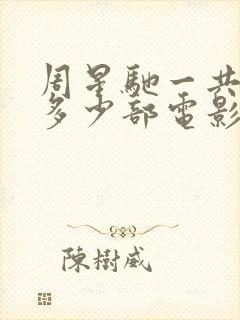 周星馳一共
多少部電影
陳樹威